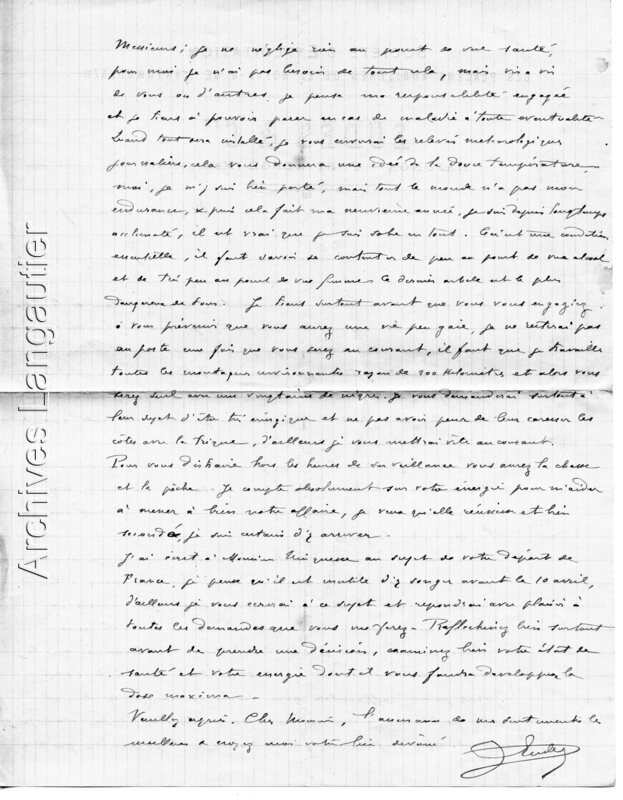 Messieurs; je ne néglige rien au point de vue santé,
pour moi je n'ai pas besoin de tout cela, mais vis à vis
de vous ou d'autres je pense ma responsabilité engagée
et je tiens à pouvoir parer en cas de maladie à toute eventualité.
Quand tout sera installé, je vous enverrai les relevés météorologiques
journaliers, cela vous donnera une idée de la douce température
moi, je m'y suis bien porté, mais tout le monde n'a pas mon
endurance, & puis cela fait ma neuvième année, je suis depuis longtemps
acclimaté, il est vrai que je suis sobre en tout. C'est une condition
essentielle, il faut savoir se contenter de peu au point de vue alcool
et de très peu au point de vue femmes le dernier article est le plus
dangereux de tous. Je tiens surtout avant que vous vous engagiez
à vous prévenir que vous aurez une vie peu gaie, je ne resterai pas
au poste une fois que vous serez au courant, il faut que je travaille
toutes les montagnes environnantes rayon de 200 kilomètres et alors vous
serez seul avec une vingtaine de nègres. Je vous demanderai surtout à
leur sujet d'être très énergique et ne pas avoir peur de leur caresser les
côtes avec la trique, d'ailleurs je vous mettrai vite au courant.
Pour vous distraire hors les heures de surveillance vous aurez la chasse
et la pêche. Je compte absolument sur votre énergie pour m'aider
à mener à bien notre affaire, je veux qu'elle réussisse et bien
secondé, je suis certain d'y arriver.
J'ai écrit à Monsieur au sujet de votre départ de
France, je pense qu'il est inutile d'y songer avant le 10 avril,
d'ailleurs je vous écrirai à ce sujet et repondrai avec plaisir à
toutes les demandes que vous me ferez. Reflechissez bien surtout
avant de prendre une décision, examinez bien votre état de
santé et votre energie dont il vous faudra developper la
dose maxima.
Veuillez agréer, Cher Monsieur, l'assurance de mes sentiments les
meilleurs & croyez moi votre bien dévoué
Archives Langautier